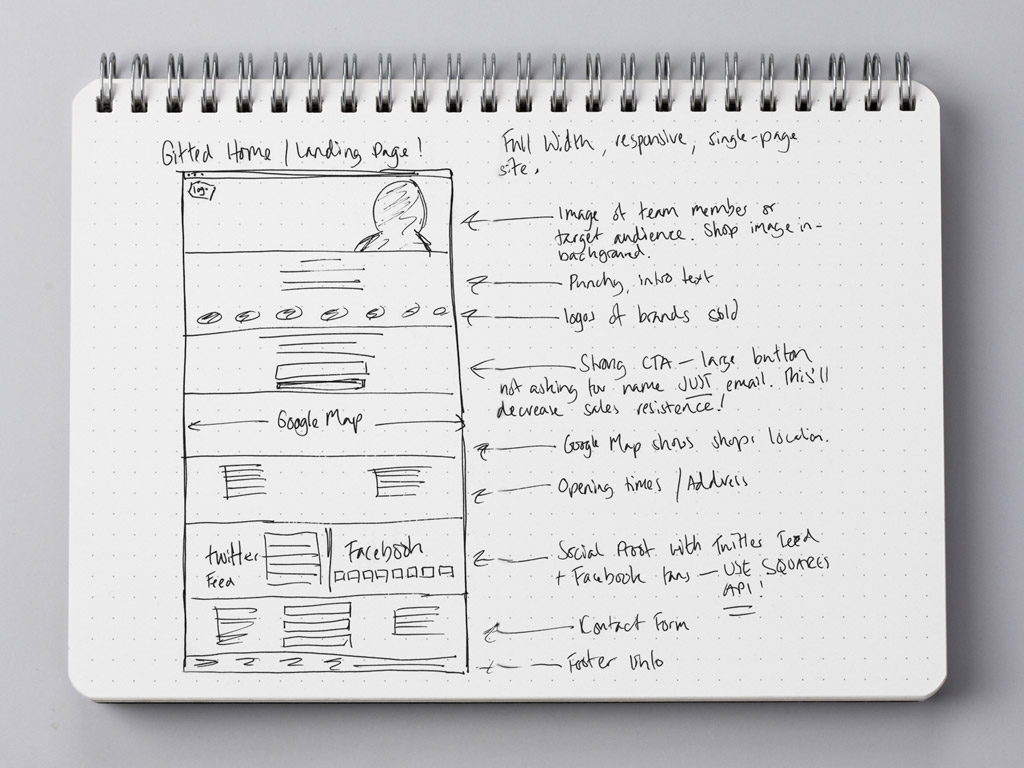 Gifted Home / Landing Page!
Full Width, responsive, single-page
site.
logo
Image of team member or
target audience. Shop image in-
background.
Punchy, intro text
logos of brands sold
Strong CTA – large button
not asking for name JUST email. This'll
decrease sales resistence!
Google Map
Google Map shows shops location.
Opening times / Address
twitter
Feed
Facebook
Social Proof with Twitter Feed
+ Facebook fans – USE SQUARES
API!
Contact Form
Footer